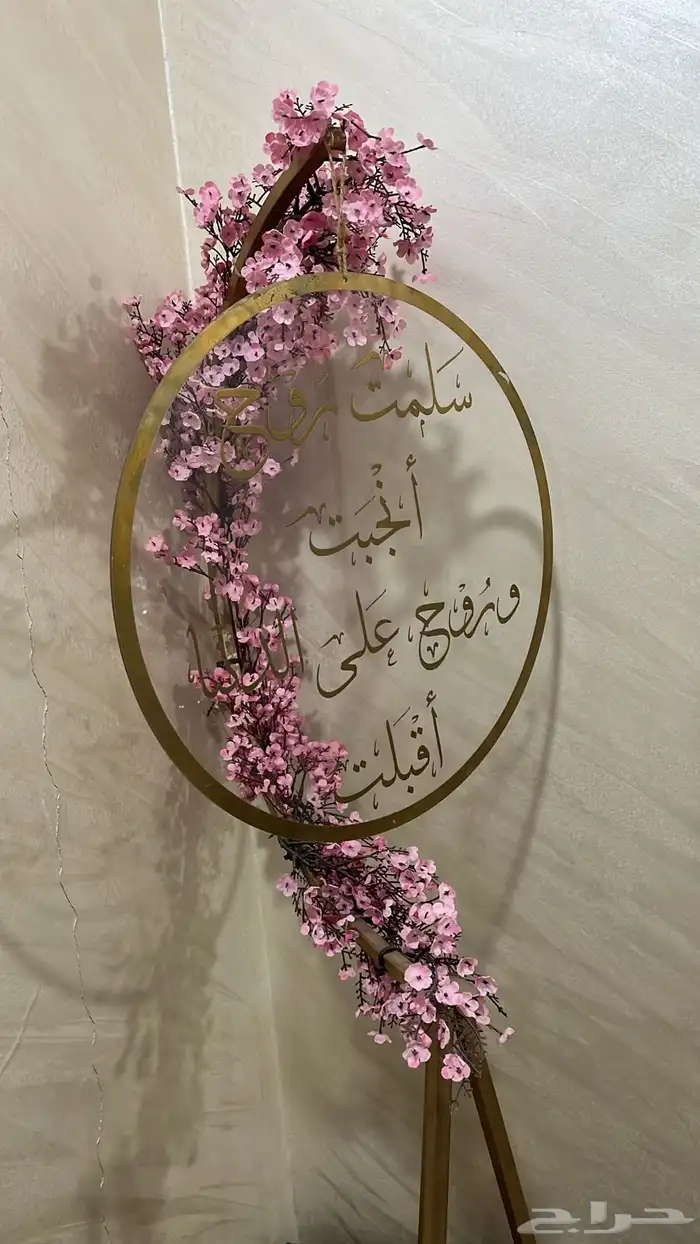 سَلَمتْ رُوْح
أنْجَبَت
ورُوْح عَلى الدنيا
أقْبَلت
حراج